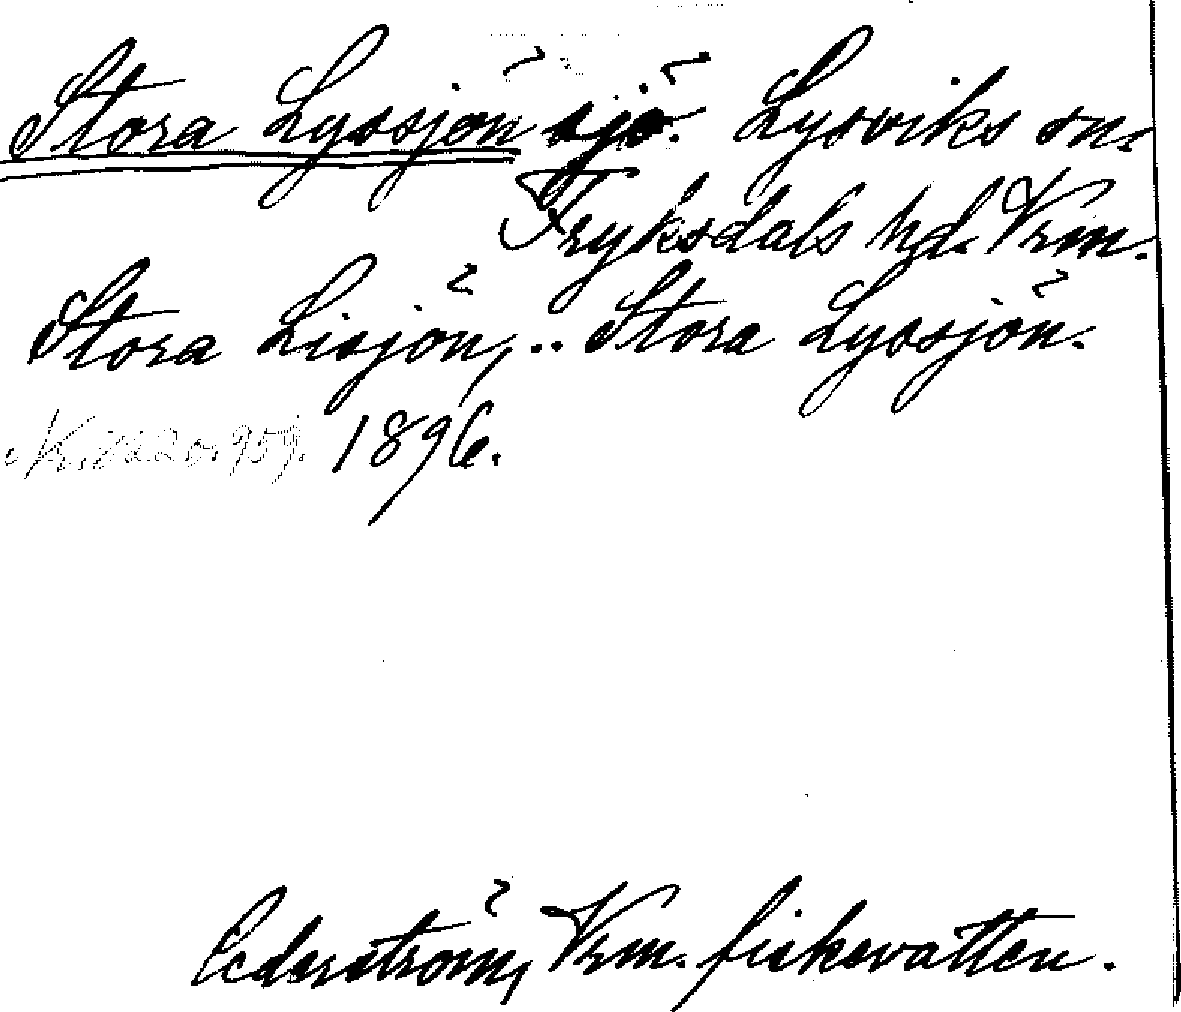 Stora Lyssjön sjö. Lysviks sn.
Fryksdals hd. Vrm.
Stora Lisjön, .. Stora Lyssjön.
1896.
Cederström, Vrm. fiskevatten.